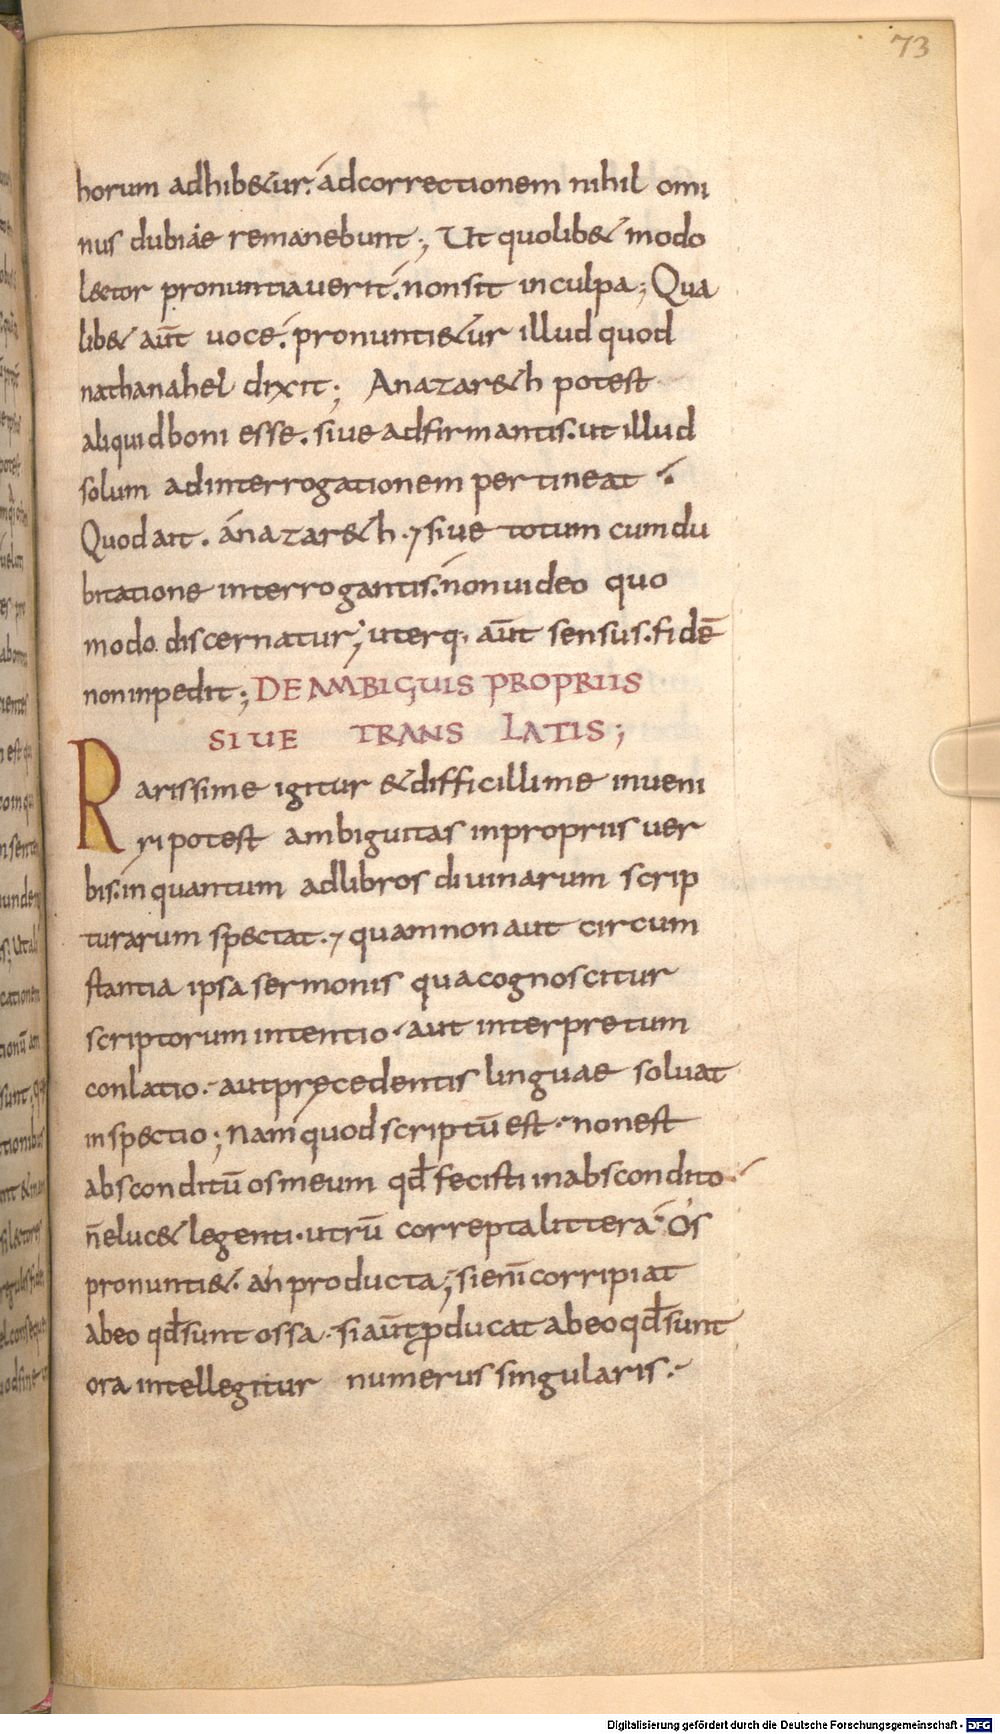 73
horum adhib&ur. adcorrectionem nihil omi
nus dubiae remanebunt; Ut quolib& modo
l&ctor pronuntiauerit. nonsit inculpa; Qua
lib& aut̄ uoce. pronunti&ur illud quod
nathanahel dixit; Anazar&h potest
aliquidboni esse. siue adfirmantis. ut illud
solum adinterrogationem pertineat.
Quod ait. anazar&h. siue totum cumdu
bitatione interrogantis. nonuideo quo
modo discernatur; uterq. aut̄ sensus. fidē
noninpedit; DE AMBIGUIS PROPRIIS
SIUE TRANS LATIS;
Rarissime igitur &difficillime inueni
ri potest ambiguitas inpropriis uer
bis. inquantum adlibros diuinarum scrip
turarum spectat. quamnon aut circum
stantia ipsa sermonis qua cognoscitur
scriptorum intentio. aut interpretum
conlatio. aut pręcedentis linguae soluat
inspectio; Nam quod scriptū est. nonest
absconditū os meum qđ fecisti inabscondito.
n̄ eluc& legenti. utrū correpta littera. Os
pronunti&. an producta; si enī corripiat
abeo qđ sunt ossa. si aut̄ ꝓducat abeo qđ sunt
ora intellegitur numerus singularis.
Digitalisierung gefördert durch die Deutsche Forschungsgemeinschaft - DFG